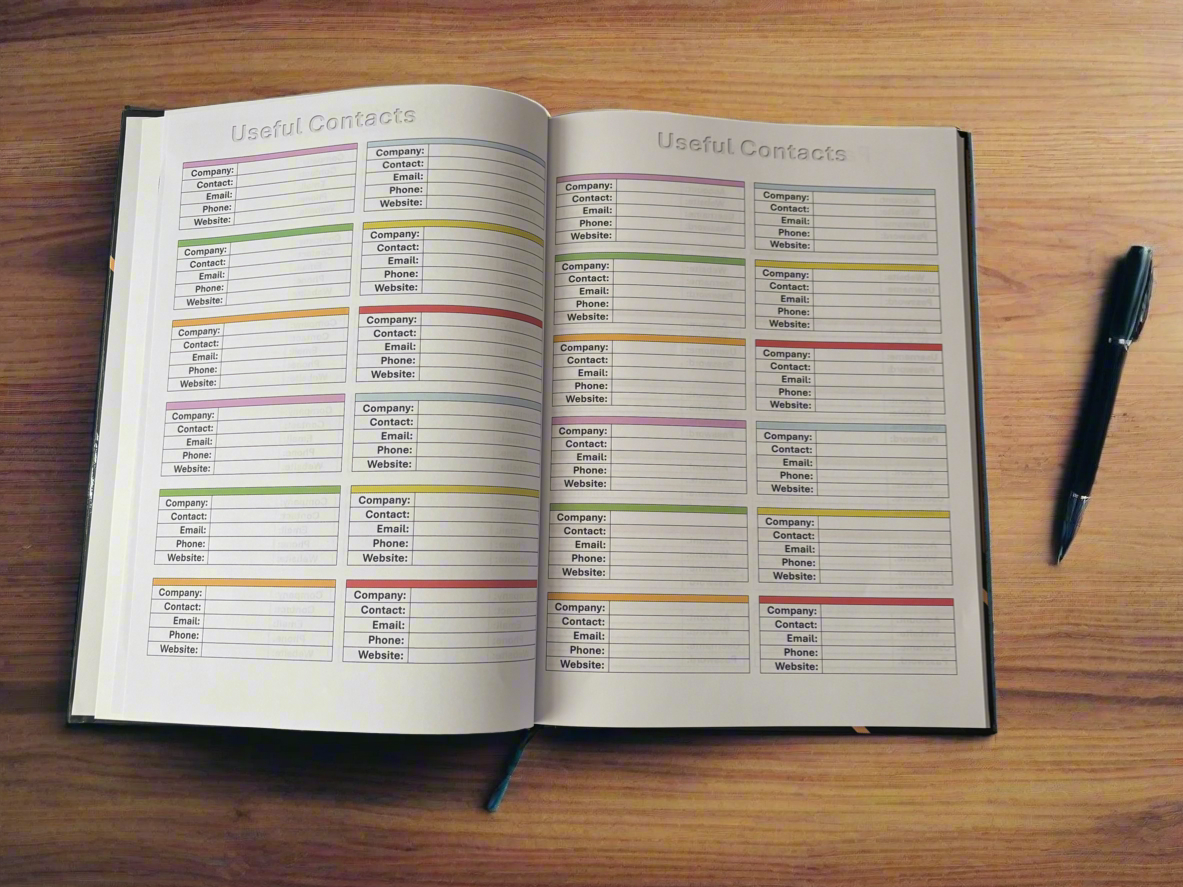 Useful Contacts
Company:
Contact:
Email:
Phone:
Website:
Company:
Contact:
Email:
Phone:
Website:
Company:
Contact:
Email:
Phone:
Website:
Company:
Contact:
Email:
Phone:
Website:
Company:
Contact:
Email:
Phone:
Website:
Company:
Contact:
Email:
Phone:
Website:
Company:
Contact:
Email:
Phone:
Website:
Company:
Contact:
Email:
Phone:
Website:
Company:
Contact:
Email:
Phone:
Website:
Company:
Contact:
Email:
Phone:
Website:
Company:
Contact:
Email:
Phone:
Website:
Company:
Contact:
Email:
Phone:
Website:
Useful Contacts
Company:
Contact:
Email:
Phone:
Website:
Company:
Contact:
Email:
Phone:
Website:
Company:
Contact:
Email:
Phone:
Website:
Company:
Contact:
Email:
Phone:
Website:
Company:
Contact:
Email:
Phone:
Website:
Company:
Contact:
Email:
Phone:
Website:
Company:
Contact:
Email:
Phone:
Website:
Company:
Contact:
Email:
Phone:
Website:
Company:
Contact:
Email:
Phone:
Website:
Company:
Contact:
Email:
Phone:
Website:
Company:
Contact:
Email:
Phone:
Website:
Company:
Contact:
Email:
Phone:
Website: